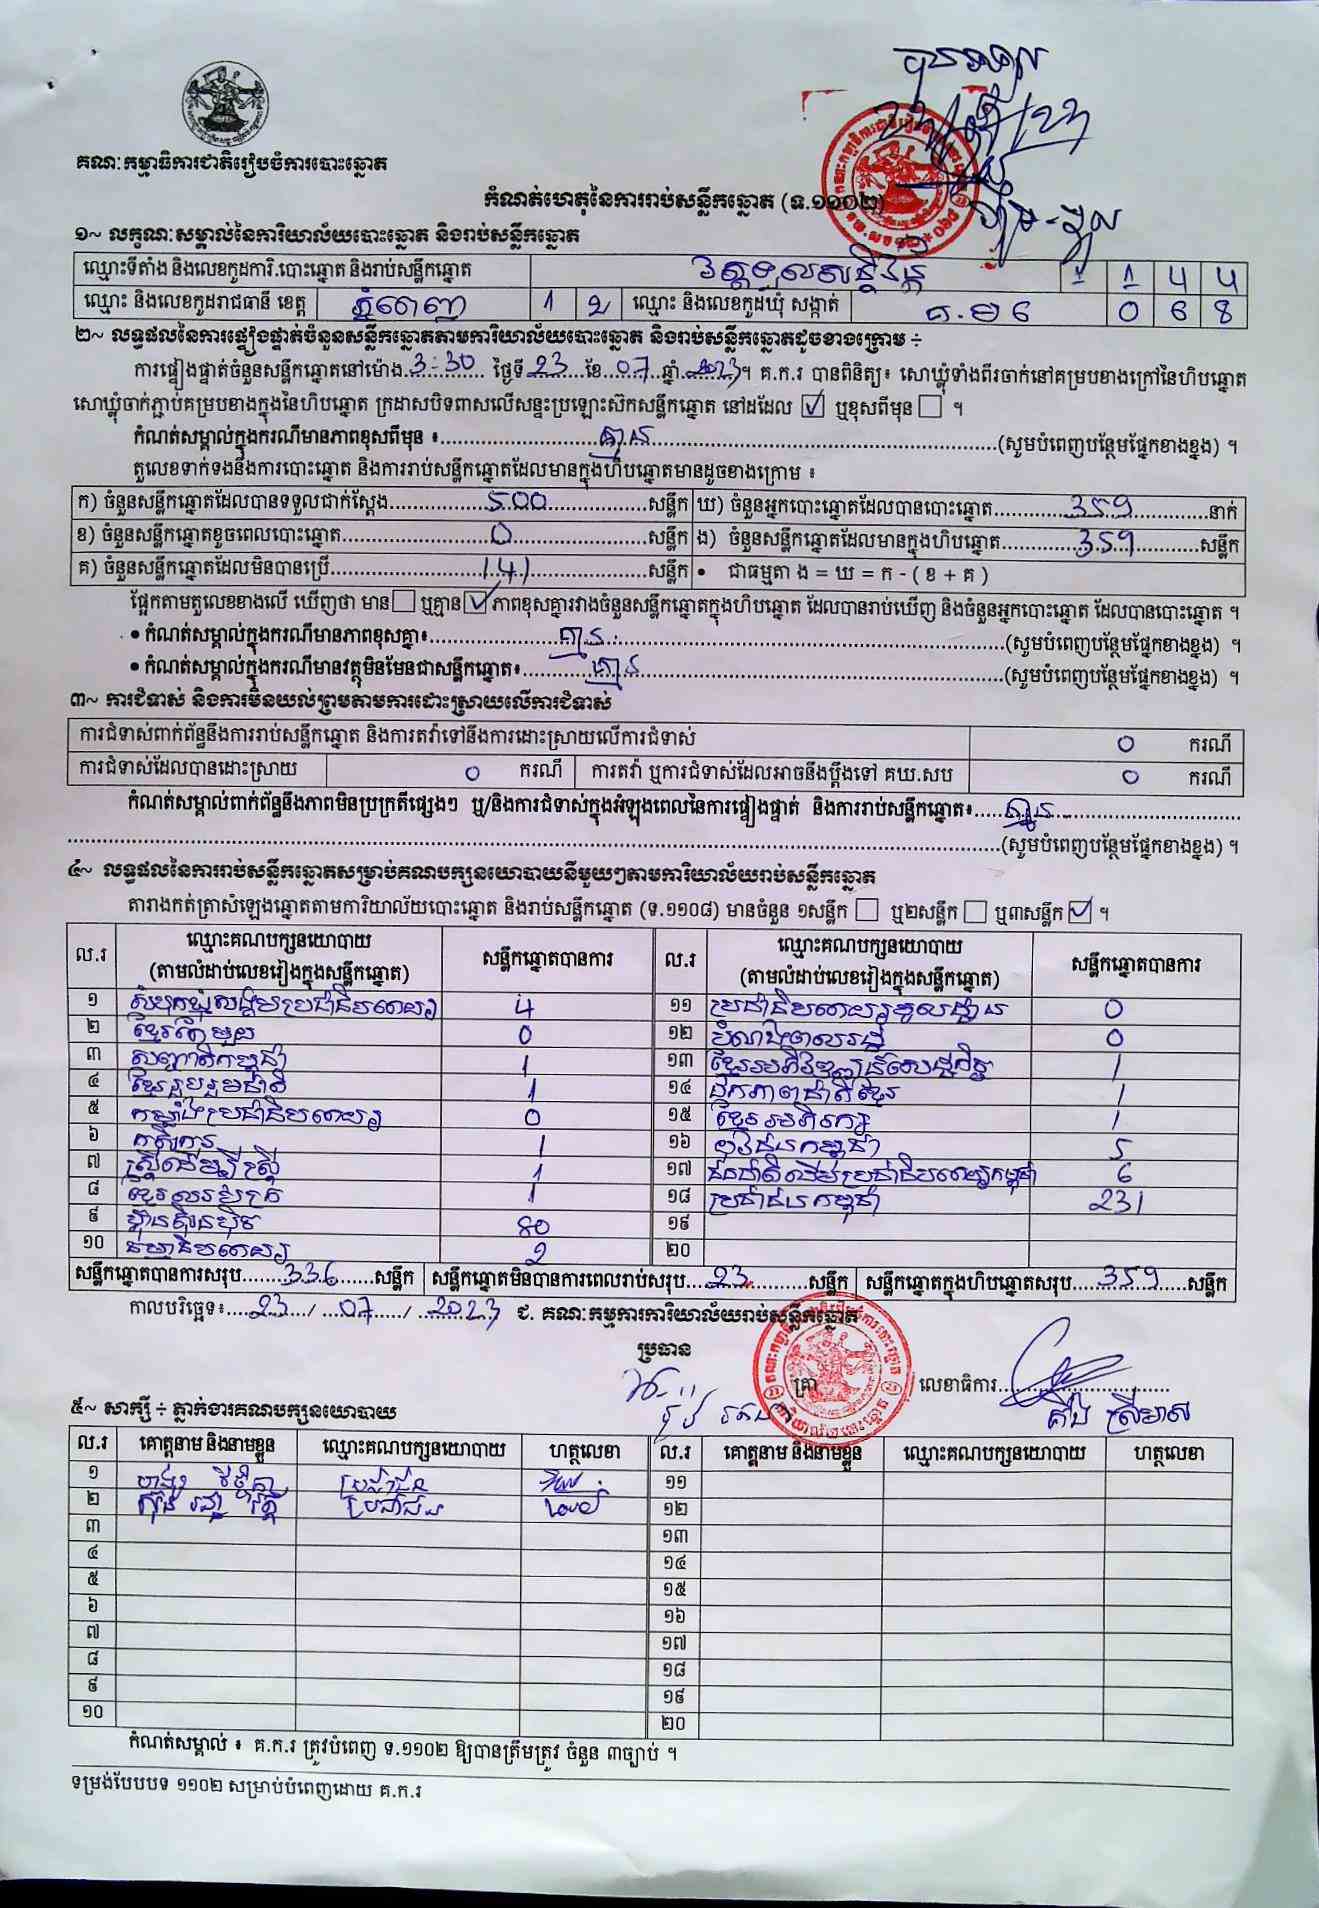 គណៈកម្មាធិការជាតិរៀបចំការបោះឆ្នោត
កំណត់ហេតុនៃការរាប់សន្លឹកឆ្នោត (ទ.១១០២)
១~ លក្ខណៈសម្គាល់នៃការិយាល័យបោះឆ្នោត និងរាប់សន្លឹកឆ្នោត
ឈ្មោះទីតាំង និងលេខកូដការិ.បោះឆ្នោត និងរាប់សន្លឹកឆ្នោត
ឈ្មោះ និងលេខកូដរាជធានី ខេត្ត ភ្នំពេញ 1 2 ឈ្មោះ និងលេខកូដឃុំ សង្កាត់ 0 6 8
២~ លទ្ធផលនៃការផ្ទៀងផ្ទាត់ចំនួនសន្លឹកឆ្នោតតាមការិយាល័យបោះឆ្នោត និងរាប់សន្លឹកឆ្នោតដូចខាងក្រោម ÷
ការផ្ទៀងផ្ទាត់ចំនួនសន្លឹកឆ្នោតនៅម៉ោង 3:30 ថ្ងៃទី 23 ខែ 07 ឆ្នាំ 2023 ។ គ.ក.រ បានពិនិត្យ៖ សោឃ្លុំទាំងពីរចាក់នៅគម្របខាងក្រៅនៃហិបឆ្នោត
សោឃ្លុំចាក់ភ្ជាប់គម្របខាងក្នុងនៃហិបឆ្នោត ក្រដាសបិទពាសលើសន្ទះប្រឡោះស៊កសន្លឹកឆ្នោត នៅដដែល ☑ ឬខុសពីមុន ☐ ។
កំណត់សម្គាល់ក្នុងករណីមានភាពខុសពីមុន ៖ គ្មាន (សូមបំពេញបន្ថែមផ្នែកខាងខ្នង) ។
តួលេខទាក់ទងនឹងការបោះឆ្នោត និងការរាប់សន្លឹកឆ្នោតដែលមានក្នុងហិបឆ្នោតមានដូចខាងក្រោម ៖
ក) ចំនួនសន្លឹកឆ្នោតដែលបានទទួលជាក់ស្តែង 500 សន្លឹក ឃ) ចំនួនអ្នកបោះឆ្នោតដែលបានបោះឆ្នោត 359 នាក់
ខ) ចំនួនសន្លឹកឆ្នោតខូចពេលបោះឆ្នោត 0 សន្លឹក ង) ចំនួនសន្លឹកឆ្នោតដែលមានក្នុងហិបឆ្នោត 359 សន្លឹក
គ) ចំនួនសន្លឹកឆ្នោតដែលមិនបានប្រើ 141 សន្លឹក • ជាធម្មតា ង = ឃ = ក - ( ខ + គ )
ផ្អែកតាមតួលេខខាងលើ ឃើញថា មាន ☐ ឬគ្មាន ☑ ភាពខុសគ្នារវាងចំនួនសន្លឹកឆ្នោតក្នុងហិបឆ្នោត ដែលបានរាប់ឃើញ និងចំនួនអ្នកបោះឆ្នោត ដែលបានបោះឆ្នោត ។
• កំណត់សម្គាល់ក្នុងករណីមានភាពខុសគ្នា៖ គ្មាន (សូមបំពេញបន្ថែមផ្នែកខាងខ្នង) ។
• កំណត់សម្គាល់ក្នុងករណីមានវត្ថុមិនមែនជាសន្លឹកឆ្នោត៖ គ្មាន (សូមបំពេញបន្ថែមផ្នែកខាងខ្នង) ។
៣~ ការជំទាស់ និងការមិនយល់ព្រមតាមការដោះស្រាយលើការជំទាស់
ការជំទាស់ពាក់ព័ន្ធនឹងការរាប់សន្លឹកឆ្នោត និងការតវ៉ាទៅនឹងការដោះស្រាយលើការជំទាស់ 0 ករណី
ការជំទាស់ដែលបានដោះស្រាយ 0 ករណី ការតវ៉ា ឬការជំទាស់ដែលអាចនឹងប្តឹងទៅ គឃ.សប 0 ករណី
កំណត់សម្គាល់ពាក់ព័ន្ធនឹងភាពមិនប្រក្រតីផ្សេងៗ ឬ/និងការជំទាស់ក្នុងអំឡុងពេលនៃការផ្ទៀងផ្ទាត់ និងការរាប់សន្លឹកឆ្នោត៖ គ្មាន
(សូមបំពេញបន្ថែមផ្នែកខាងខ្នង) ។
៤~ លទ្ធផលនៃការរាប់សន្លឹកឆ្នោតសម្រាប់គណបក្សនយោបាយនីមួយៗតាមការិយាល័យរាប់សន្លឹកឆ្នោត
តារាងកត់ត្រាសំឡេងឆ្នោតតាមការិយាល័យបោះឆ្នោត និងរាប់សន្លឹកឆ្នោត (ទ.១១០៨) មានចំនួន ១សន្លឹក ☐ ឬ២សន្លឹក ☐ ឬ៣សន្លឹក ☑ ។
ល.រ ឈ្មោះគណបក្សនយោបាយ (តាមលំដាប់លេខរៀងក្នុងសន្លឹកឆ្នោត) សន្លឹកឆ្នោតបានការ ល.រ ឈ្មោះគណបក្សនយោបាយ (តាមលំដាប់លេខរៀងក្នុងសន្លឹកឆ្នោត) សន្លឹកឆ្នោតបានការ
១ សំបុកឃ្មុំសង្គមប្រជាធិបតេយ្យ 4 ១១ ប្រជាធិបតេយ្យមូលដ្ឋាន 0
២ ខ្មែរតែមួយ 0 ១២ បំណងពលរដ្ឋ 0
៣ សញ្ជាតិកម្ពុជា 1 ១៣ ខ្មែរអភិវឌ្ឍន៍សេដ្ឋកិច្ច 1
៤ ខ្មែររួបរួមជាតិ 1 ១៤ ឯកភាពជាតិខ្មែរ 1
៥ កម្លាំងប្រជាធិបតេយ្យ 0 ១៥ ខ្មែរអភិរក្ស 1
៦ កសិករ 1 ១៦ យុវជនកម្ពុជា 5
៧ ស្ត្រីដើម្បីស្ត្រី 1 ១៧ ជនជាតិដើមប្រជាធិបតេយ្យកម្ពុជា 6
៨ ខ្មែរឈប់ក្រ 1 ១៨ ប្រជាជនកម្ពុជា 231
៩ ហ្វ៊ុនស៊ិនប៉ិច 80 ១៩
១០ ធម្មាធិបតេយ្យ 2 ២០
សន្លឹកឆ្នោតបានការសរុប 336 សន្លឹក សន្លឹកឆ្នោតមិនបានការពេលរាប់សរុប 23 សន្លឹក សន្លឹកឆ្នោតក្នុងហិបឆ្នោតសរុប 359 សន្លឹក
កាលបរិច្ឆេទ៖ 23 / 07 / 2023 ជ. គណៈកម្មការការិយាល័យរាប់សន្លឹកឆ្នោត
ប្រធាន
ត្រា លេខាធិការ
៥~ សាក្សី ÷ ភ្នាក់ងារគណបក្សនយោបាយ
ល.រ គោត្តនាម និងនាមខ្លួន ឈ្មោះគណបក្សនយោបាយ ហត្ថលេខា ល.រ គោត្តនាម និងនាមខ្លួន ឈ្មោះគណបក្សនយោបាយ ហត្ថលេខា
១ ប្រជាជន ១១
២ ប្រជាជន ១២
៣ ១៣
៤ ១៤
៥ ១៥
៦ ១៦
៧ ១៧
៨ ១៨
៩ ១៩
១០ ២០
កំណត់សម្គាល់ ៖ គ.ក.រ ត្រូវបំពេញ ទ.១១០២ ឱ្យបានត្រឹមត្រូវ ចំនួន ៣ច្បាប់ ។
ទម្រង់បែបបទ ១១០២ សម្រាប់បំពេញដោយ គ.ក.រ